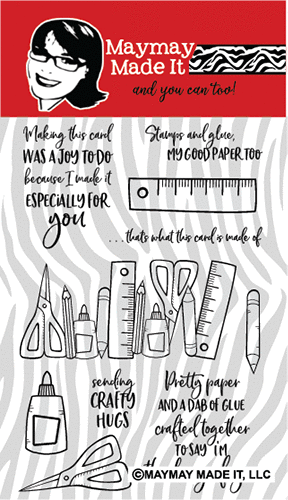 Maymay
Made It
and you can too!
Making this card
WAS A JOY TO DO
because I made it
ESPECIALLY FOR
you
Stamps and glue,
MY GOOD PAPER TOO
...thats what this card is made of
sending
CRAFTY
HUGS
Pretty paper
AND A DAB OF GLUE
crafted together
TO SAY I'M
©MAYMAY MADE IT, LLC